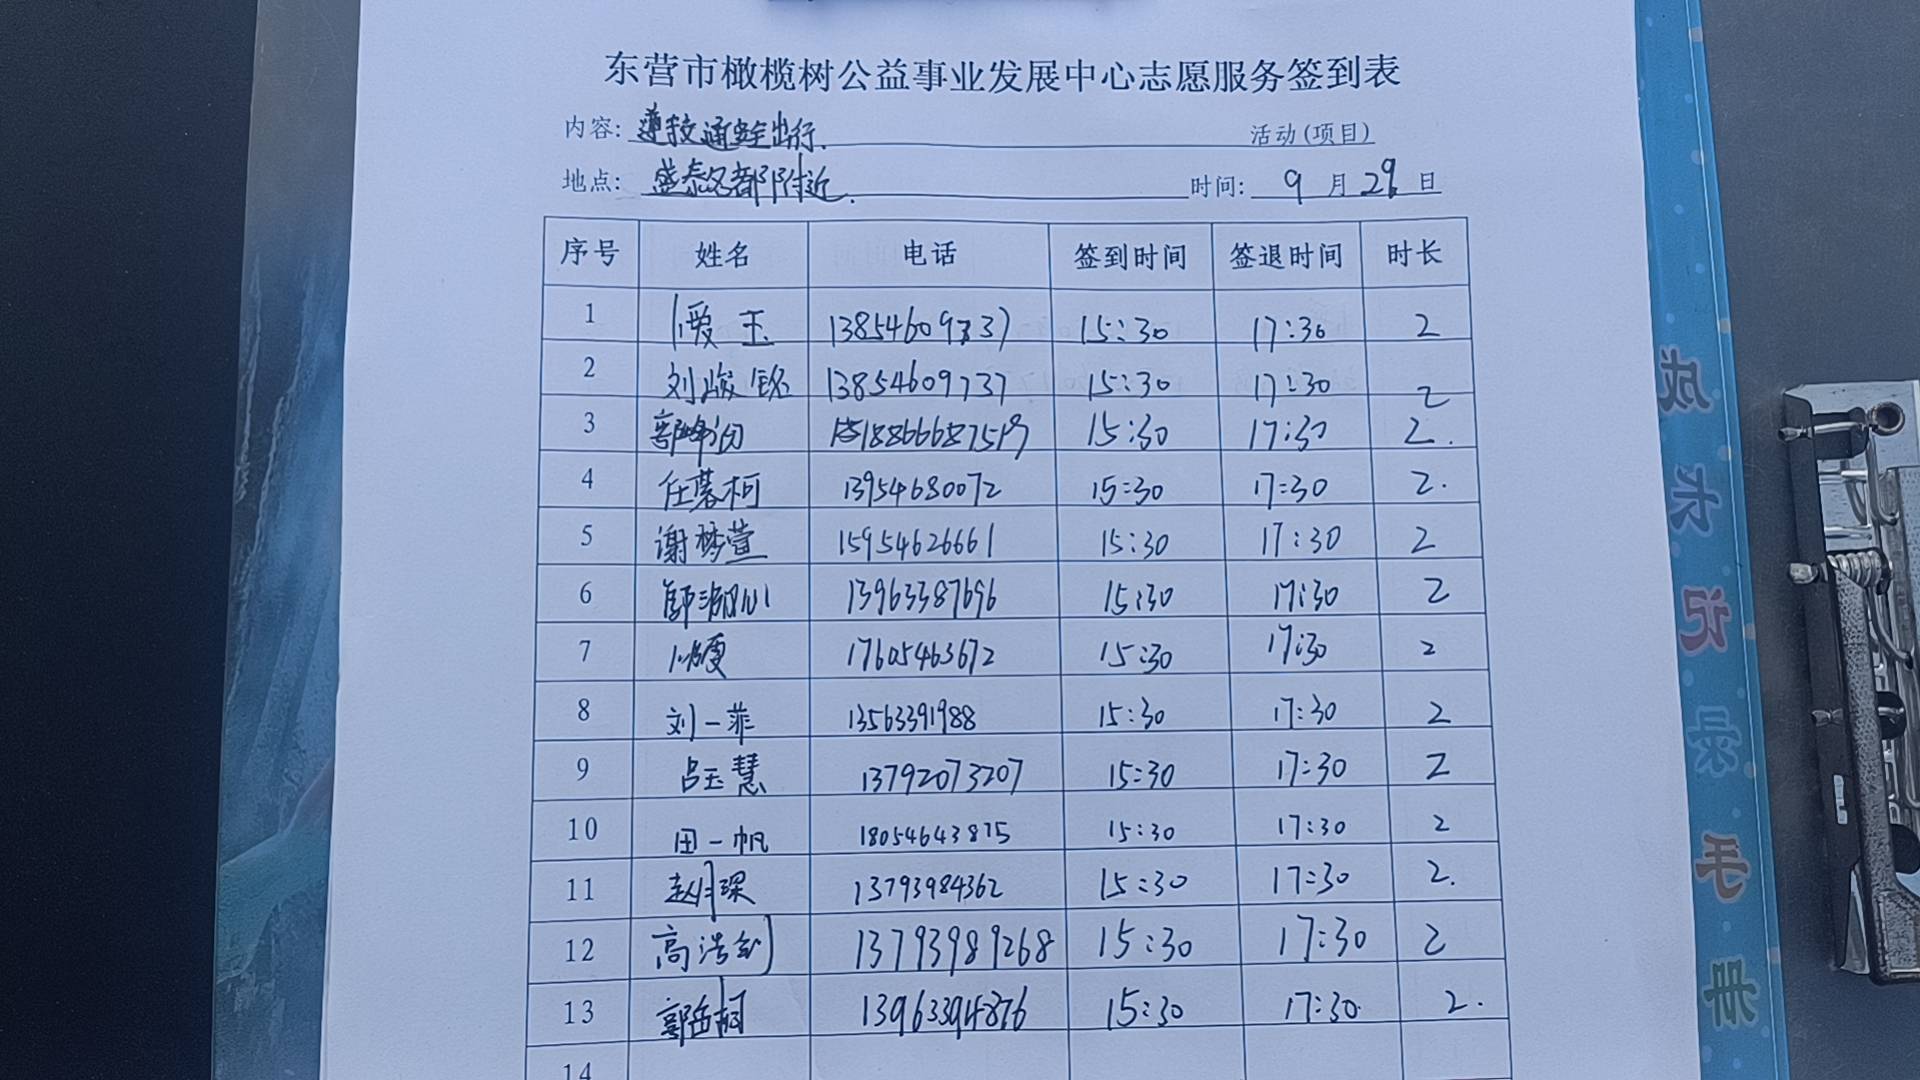 东营市橄榄树公益事业发展中心志愿服务签到表
内容: 遵交通安全出行. 活动(项目)
地点: 盛泰名都附近. 时间: 9 月 29 日
序号 姓名 电话 签到时间 签退时间 时长
1 爱玉 15:30 17:30 2
2 刘峻铭 13854609737 15:30 17:30 2
3 15:30 17:30 2.
4 任慕柯 13954680072 15:30 17:30 2.
5 谢梦萱 15954626661 15:30 17:30 2
6 13963387696 15:30 17:30 2
7 17605463672 15:30 17:30 2
8 刘一菲 13563391988 15:30 17:30 2
9 吕玉慧 13792073207 15:30 17:30 2
10 田一帆 18054643875 15:30 17:30 2
11 赵月琛 13793984362 15:30 17:30 2.
12 高浩钊 13793989268 15:30 17:30 2
13 13963394876 15:30 17:30. 2.
14
成长记录手册